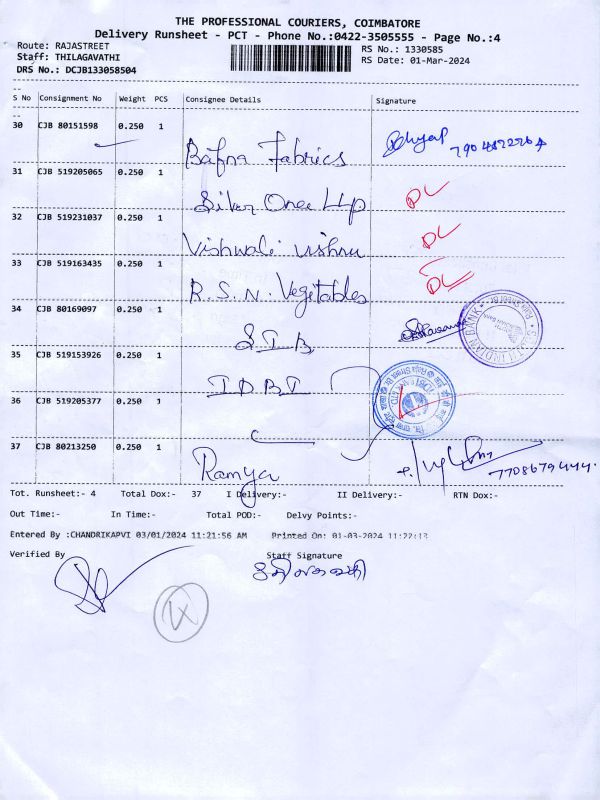 THE PROFESSIONAL COURIERS, COIMBATORE
Delivery Runsheet - PCT - Phone No.:0422-3505555 - Page No.:4
Route: RAJASTREET
RS No.: 1330585
Staff: THILAGAVATHI
RS Date: 01-Mar-2024
DRS No.: DCJB133058504
S No Consignment No Weight PCS Consignee Details Signature
30 CJB 80151598 0.250 1
Bafna Fabrics
31 CJB 519205065 0.250 1
Silver One LLP DL
32 CJB 519231037 0.250 1
Vishwali vishnu DL
33 CJB 519163435 0.250 1
R.S.N. Vegetables DL
34 CJB 80169097 0.250 1
S I B
35 CJB 519153926 0.250 1
I D B I
36 CJB 519205377 0.250 1
37 CJB 80213250 0.250 1
Ramya
7708679444.
Tot. Runsheet:- 4 Total Dox:- 37 I Delivery:- II Delivery:- RTN Dox:-
Out Time:- In Time:- Total POD:- Delvy Points:-
Entered By :CHANDRIKAPVI 03/01/2024 11:21:56 AM Printed On: 01-03-2024 11:22:13
Verified By Staff Signature